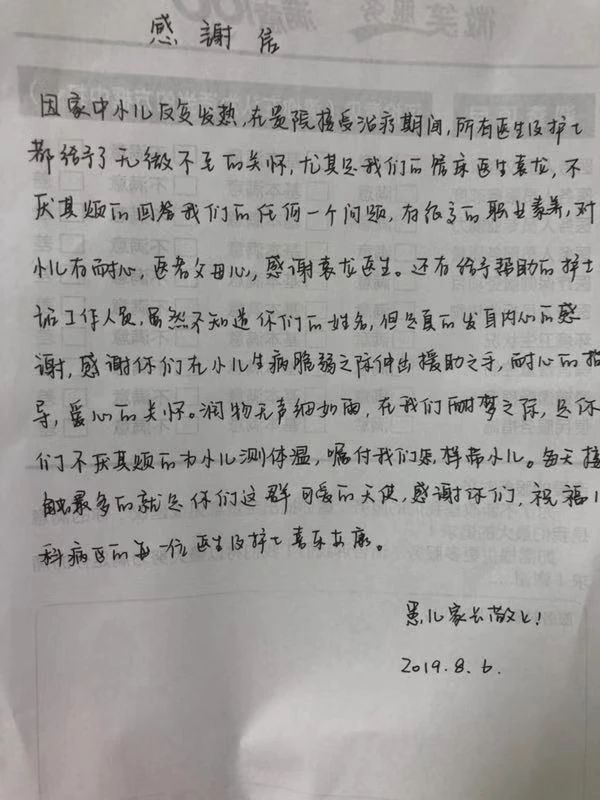 感謝信
因家中小儿反复发热,在贵院接受治疗期间,所有医生及护士
都给予了无微不至的关怀,尤其是我们的管床医生袁龙,不
厌其烦的回答我们的任何一个问题,有很高的职业素养,对
小儿有耐心,医者父母心,感谢袁龙医生。还有给予帮助的护士
站工作人员,虽然不知道你们的姓名,但是真的发自内心的感
谢,感谢你们在小儿生病脆弱之际伸出援助之手,耐心的指
导,爱心的关怀。润物无声细如雨,在我们酣梦之际,是你
们不厌其烦的为小儿测体温,嘱付我们怎样带小儿。每天接
触最多的就是你们这群可爱的天使,感谢你们,祝福儿
科病区的每一位医生及护士喜乐安康。
患儿家长敬上!
2019.8.6.
微笑服务 满意100